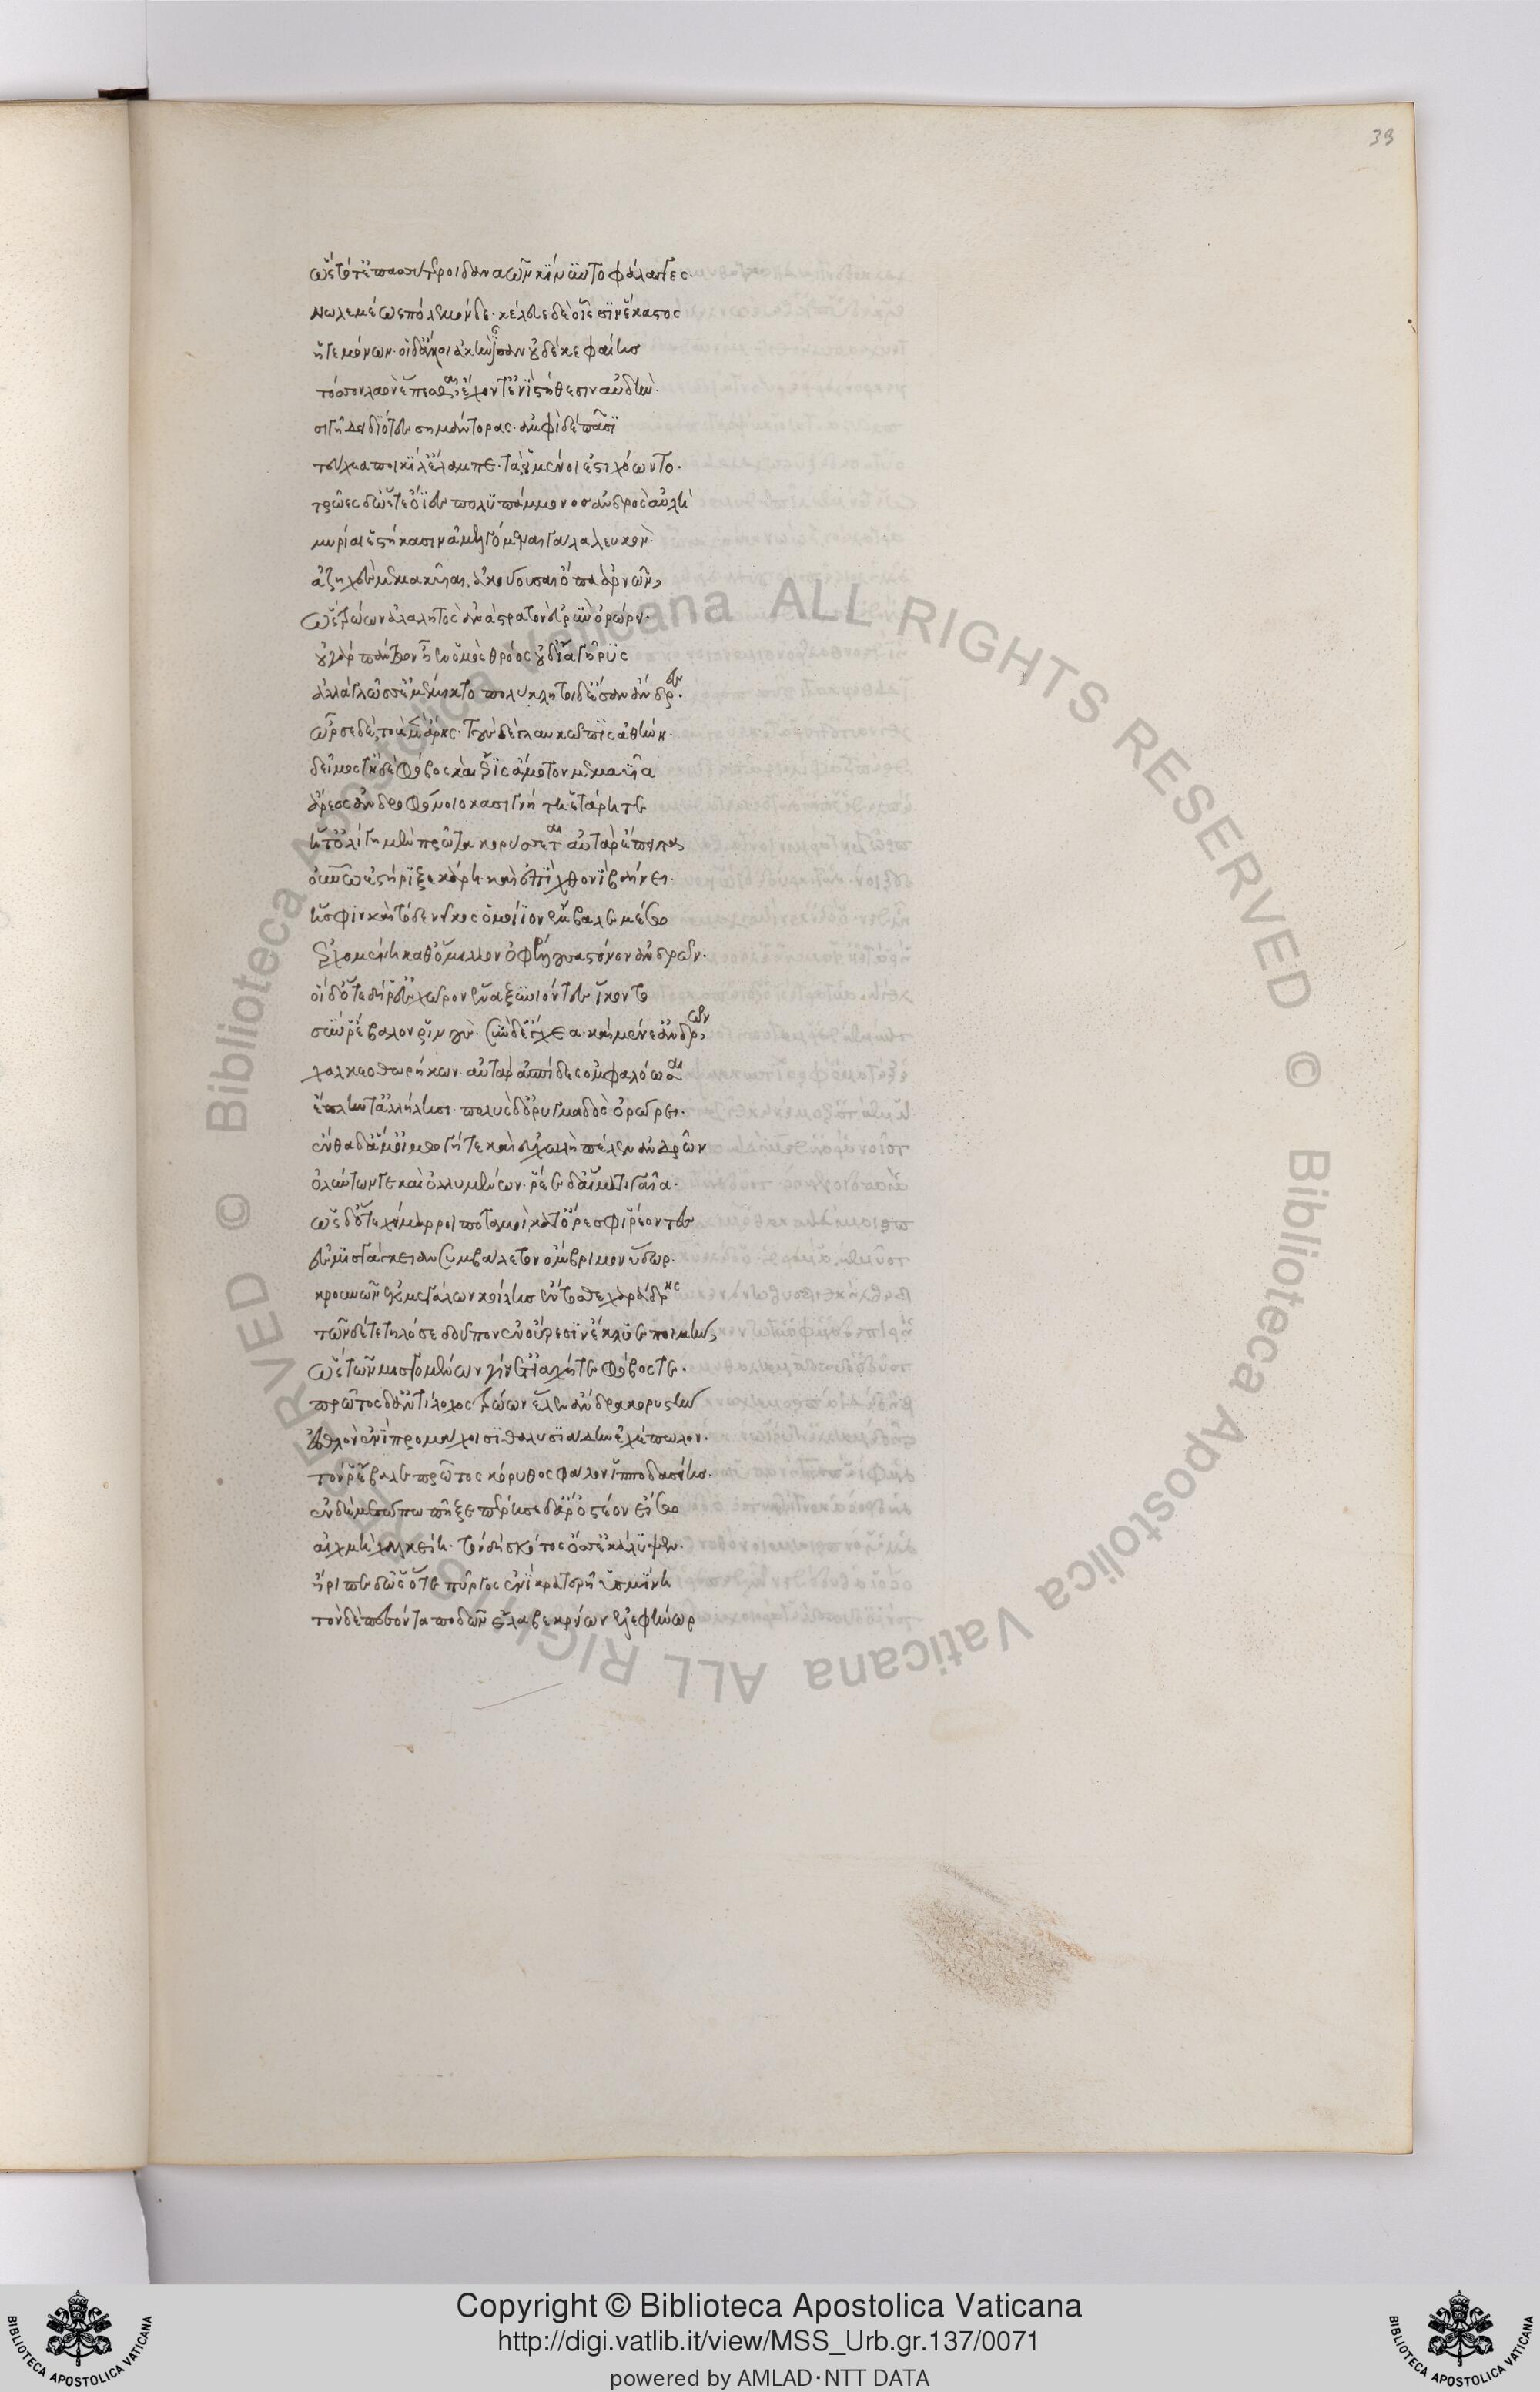 33
ὣς τότ' ἐπασσύτεροι δαναῶν κίνυντο φάλαγγες.
νωλεμέως πόλεμόνδε. κέλευε δὲ οἷσιν ἕκαστος
ἡγεμόνων. οἱ δ' ἄλλοι ἀκὴν ἴσαν οὐδέ κε φαίης
τόσσον λαὸν ἕπεσθαι ἔχοντ' ἐν στήθεσιν αὐδήν.
σιγῇ δειδιότες σημάντορας. ἀμφὶ δὲ πᾶσι
τεύχεα ποικίλ' ἔλαμπε. τὰ εἱμένοι ἐστιχόωντο.
τρῶες δ' ὥς τ' ὄϊες πολυπάμμονος ἀνδρὸς αὐλῇ
μυρίαι ἑστήκασιν ἀμελγόμεναι γάλα λευκόν.
ἀζηχὲς μεμακυῖαι, ἀκούουσαι ὄπα ἀρνῶν,
ὣς τρώων ἀλαλητὸς ἀνὰ στρατὸν εὐρὺν ὀρώρει.
οὐ γὰρ πάντων ἦεν ὁμὸς θρόος οὐδ' ἴα γῆρυς
ἀλλὰ γλῶσσ' ἐμέμικτο πολύκλητοι δ' ἔσαν ἄνδρες.
ὦρσε δὲ τοὺς μὲν ἄρης. τοὺς δὲ γλαυκῶπις ἀθήνη.
δεῖμός τ' ἠδὲ φόβος καὶ ἔρις ἄμοτον μεμαυῖα
ἄρεος ἀνδροφόνοιο κασιγνήτη ἑτάρη τε
ἥ τ' ὀλίγη μὲν πρῶτα κορύσσεται αὐτὰρ ἔπειτα
οὐρανῷ ἐστήριξε κάρη. καὶ ἐπὶ χθονὶ βαίνει.
ἥ σφιν καὶ τότε νεῖκος ὁμοίϊον ἔμβαλε μέσσῳ
ἐρχομένη καθ' ὅμιλον ὀφέλλουσα στόνον ἀνδρῶν.
οἱ δ' ὅτε δή ῥ' ἐς χῶρον ἕνα ξυνιόντες ἵκοντο
σύν ῥ' ἔβαλον ῥινούς. σὺν δ' ἔγχεα. καὶ μένε' ἀνδρῶν
χαλκεοθωρήκων. αὐτὰρ ἀσπίδες ὀμφαλόεσσαι
ἔπληντ' ἀλλήλῃσι. πολὺς δ' ὀρυμαγδὸς ὀρώρει.
ἔνθα δ' ἅμ' οἰμωγή τε καὶ εὐχωλὴ πέλεν ἀνδρῶν
ὀλλύντων τε καὶ ὀλλυμένων. ῥέε δ' αἵματι γαῖα.
ὡς δ' ὅτε χείμαρροι ποταμοὶ κατ' ὄρεσφι ῥέοντες
ἐς μισγάγκειαν συμβάλετον ὄμβριμον ὕδωρ.
κρουνῶν ἐκ μεγάλων κοίλης ἔντοσθε χαράδρης
τῶν δέ τε τηλόσε δοῦπον ἐν οὔρεσιν ἔκλυε ποιμήν,
ὣς τῶν μισγομένων γένετο ἰαχή τε φόβος τε.
πρῶτος δ' ἀντίλοχος τρώων ἕλεν ἄνδρα κορυστὴν
ἐσθλὸν ἐνὶ προμάχοισι θαλυσιάδην ἐχέπωλον.
τόν ῥ' ἔβαλε πρῶτος κόρυθος φάλον ἱπποδασείης.
ἐν δὲ μετώπῳ πῆξε πέρησε δ' ἄρ' ὀστέον εἴσω
αἰχμὴ χαλκείη. τὸν δὲ σκότος ὄσσε κάλυψεν.
ἤριπε δ' ὡς ὅτε πύργος ἐνὶ κρατερῇ ὑσμίνῃ
τὸν δὲ πεσόντα ποδῶν ἔλαβε κρείων ἐλεφήνωρ
Copyright © Biblioteca Apostolica Vaticana
http://digi.vatlib.it/view/MSS_Urb.gr.137/0071
powered by AMLAD·NTT DATA